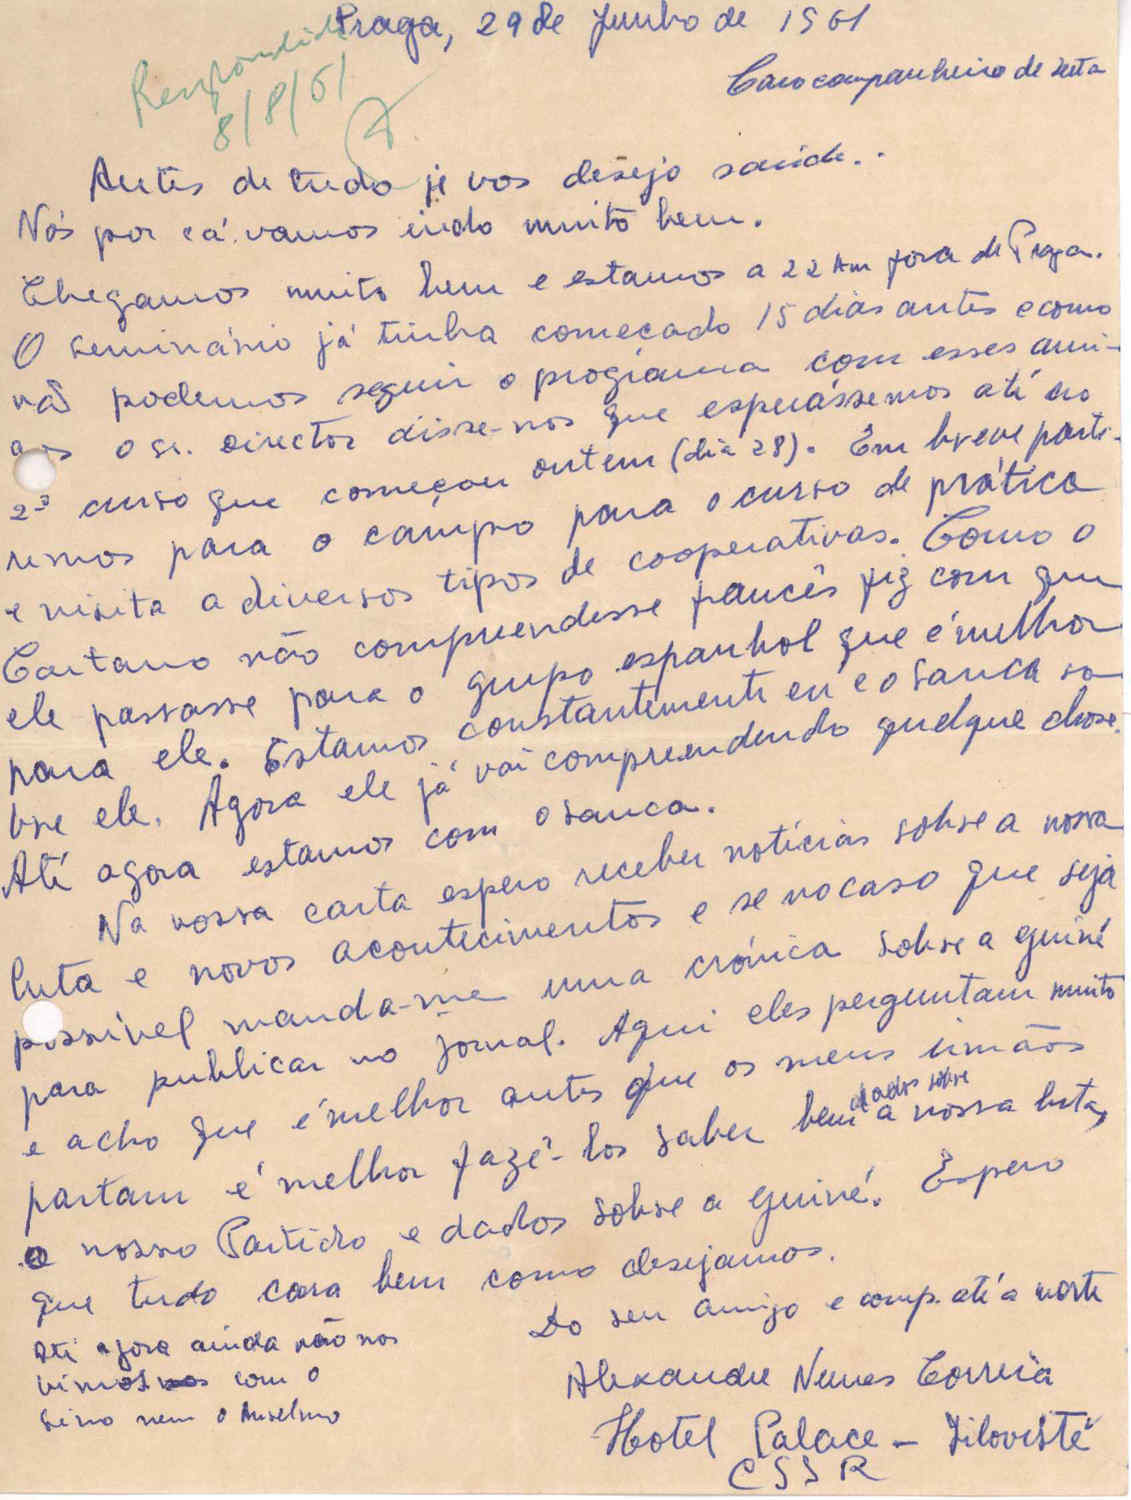 Praga, 29 de Junho de 1961
Respondida
8/8/61
Caro companheiro de luta
Antes de tudo já vos desejo saúde..
Nós por cá vamos indo muito bem.
Chegamos muito bem e estamos a 22 Km fora de Praga.
O seminário já tinha começado 15 dias antes e como
não podemos seguir o programa com esses ami-
gos o sr. director disse-nos que esperássemos até ao
2º curso que começou ontem (dia 28). Em breve parti-
remos para o campo para o curso de prática
e visita a diversos tipos de cooperativas. Como o
Caetano não compreendesse francês fiz com que
ele passasse para o grupo espanhol que é melhor
para ele. Estamos constantemente eu e o Sanca so-
bre ele. Agora ele já vai compreendendo quelque chose.
Até agora estamos com o Sanca.
Na vossa carta espero receber notícias sobre a nossa
luta e novos acontecimentos e se no caso que seja
possível manda-me uma crónica sobre a Guiné
para publicar no jornal. Aqui eles perguntam muito
e acho que é melhor antes que os meus irmãos
partam é melhor fazê-los saber bem dados sobre a nossa luta,
o nosso Partido e dados sobre a Guiné. Espero
que tudo corra bem como desejamos.
Do seu amigo e comp. até a morte
Alexandre Nunes Correia
Hotel Palace - Jiloviště
CSSR
Até agora ainda não nos
vimos com o
nem o Anselmo